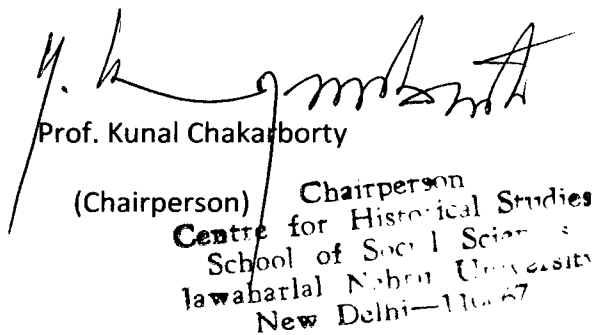 Prof. Kunal Chakarborty
(Chairperson)
Chairperson
Centre for Historical Studies
School of Social
Jawaharlal Nehru University
New Delhi—